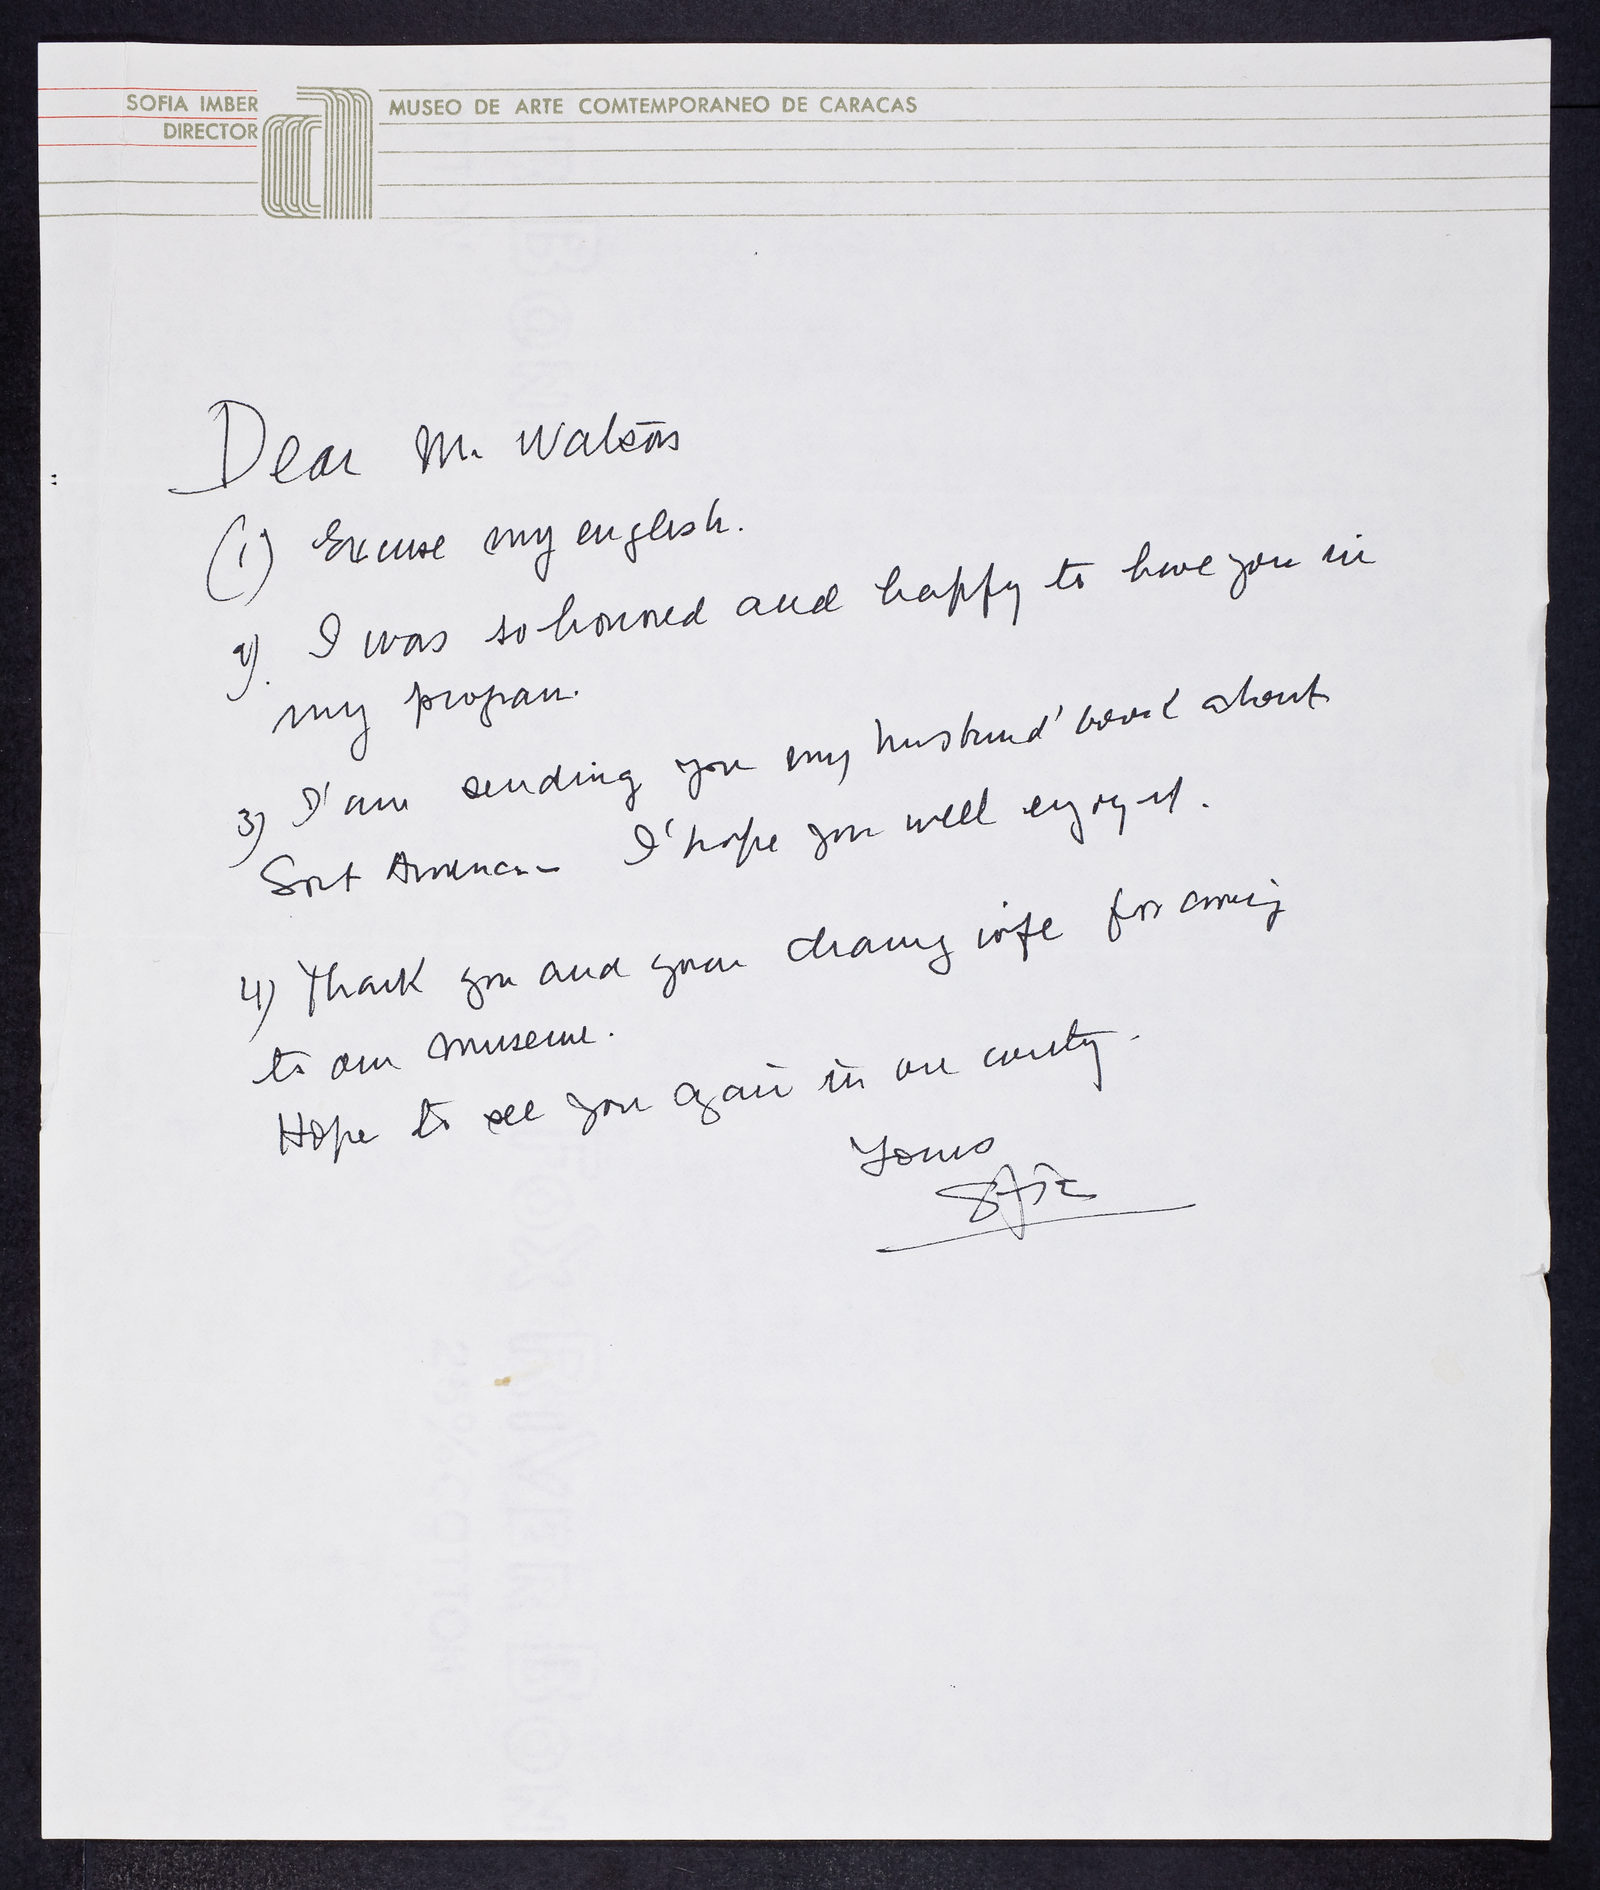 SOFIA IMBER
DIRECTOR
MUSEO DE ARTE COMTEMPORANEO DE CARACAS
Dear M. Watson
(1) Excuse my english.
2) I was so honored and happy to have you in
my program.
3) I'am sending you my husband' book about
Sout America - I'hope you well enjoy it.
4) Thank you and your charming wife for coming
to our museum.
Hope to see you again in our country.
Yours
Sofia